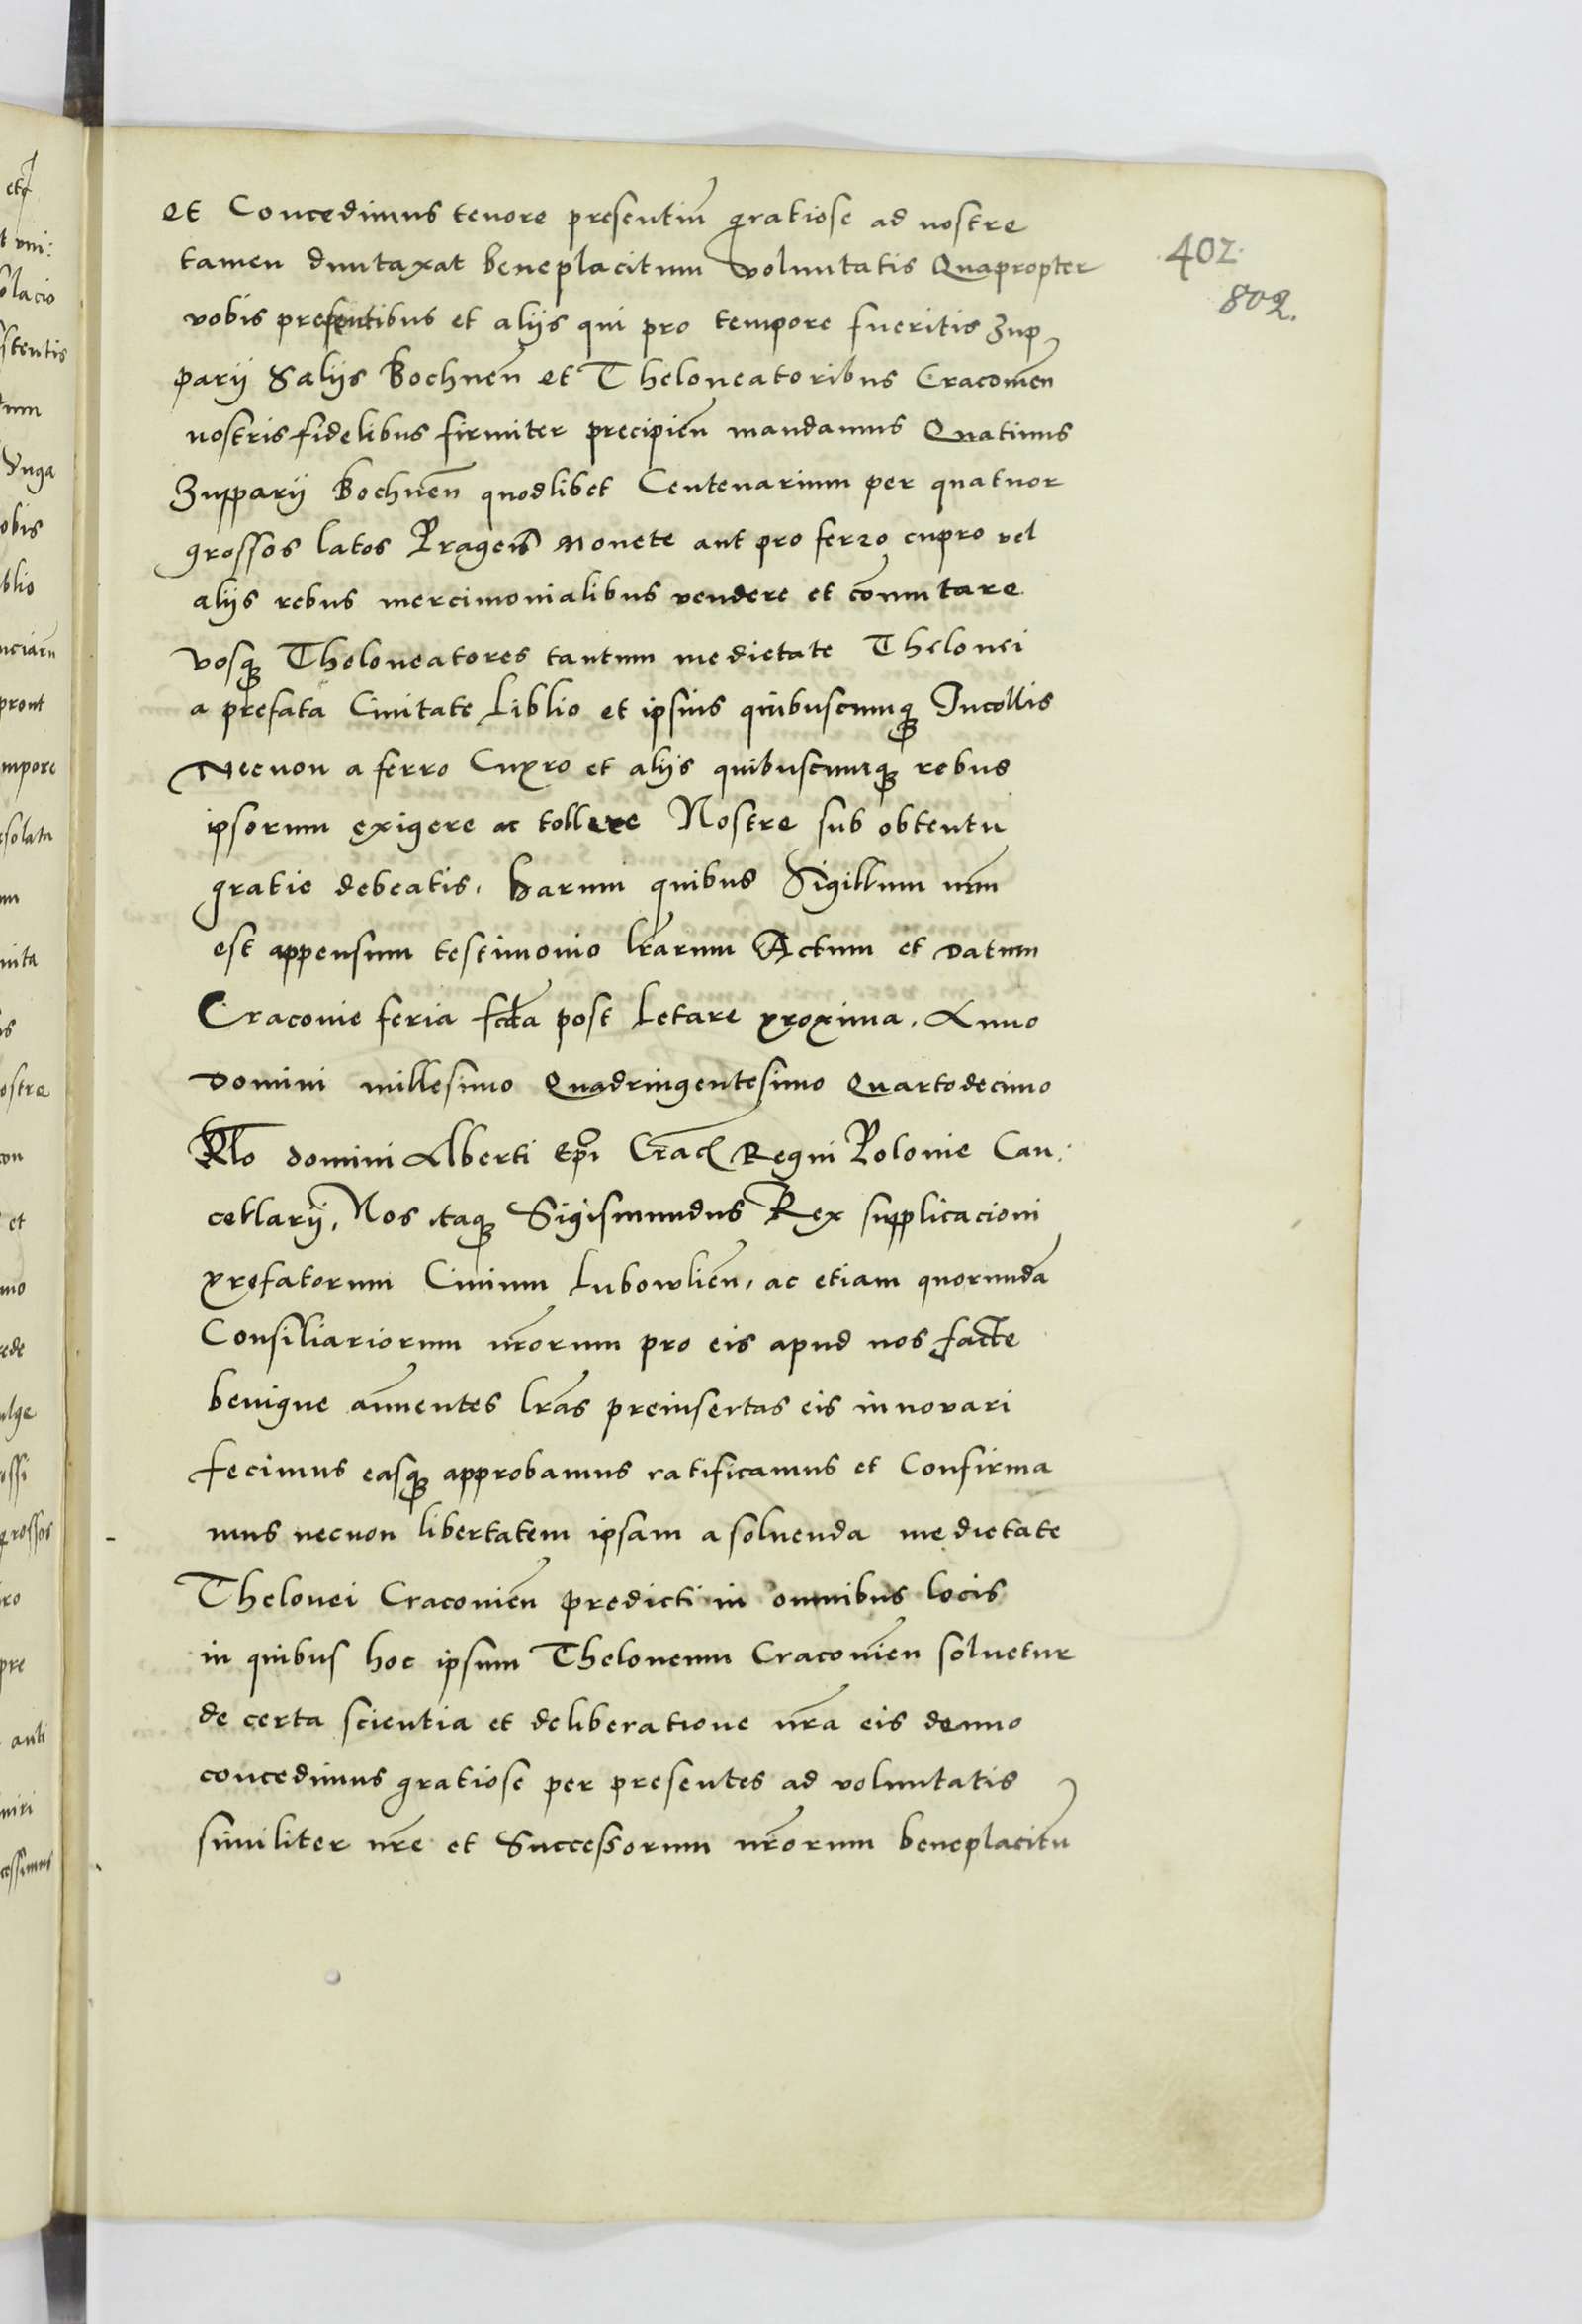 et Concedimus tenore presentiu̅ gratiose ad nostre
tamen duntaxat beneplacitum voluntatis Quapropter
402.
802.
vobis presentibus et aliis qui pro tempore fueritis Zup
parij Saliis Bochnen̅ et Theloneatoribus Cracovien̅
nostris fidelibus firmiter precipien̅ mandamus Quatinus
Zupparij Bochnen̅ quodlibet Centenarium per quatuor
grossos latos Pragen̅ Monete aut pro ferro cupro vel
aliis rebus mercimonialibus vendere et co̅mutare
vosq̨ Theloneatores tantum medietate Thelonei
a prefata Civitate Liblio et ipsius quibuscumq̨ Incollis
Necnon a ferro Cupro et aliis quibuscumq̨ rebus
ipsorum exigere ac tollere Nostre sub obtentu
gratie debeatis. Harum quibus Sigillum nr̅m
est appensum testimonio lr̅arum Actum et Datum
Cracovie feria sc̅da post Letare proxima. Anno
Domini millesimo Quadringentesimo Quartodecimo
R̅lo domini Alberti Ep̅i Crac̅ Regni Polonie Can:
cellarij. Nos itaq̨ Sigismundus Rex supplicacioni
prefatorum Civium Lubowlien̅. ac etiam quorunda̅
Consiliariorum nr̅orum pro eis apud nos facte
benigne an̅uentes lr̅as preinsertas eis innovari
fecimus easq̨ approbamus ratificamus et Confirma
mus necnon libertatem ipsam a soluenda medietate
Thelonei Cracovien̅ predicti in omnibus locis
in quibus hoc ipsum Theloneum Cracovien̅ soluetur
de certa scientia et deliberatione nr̅a eis denuo
concedimus gratiose per presentes ad voluntatis
similiter nr̅e et Successorum nr̅orum beneplacitu̅